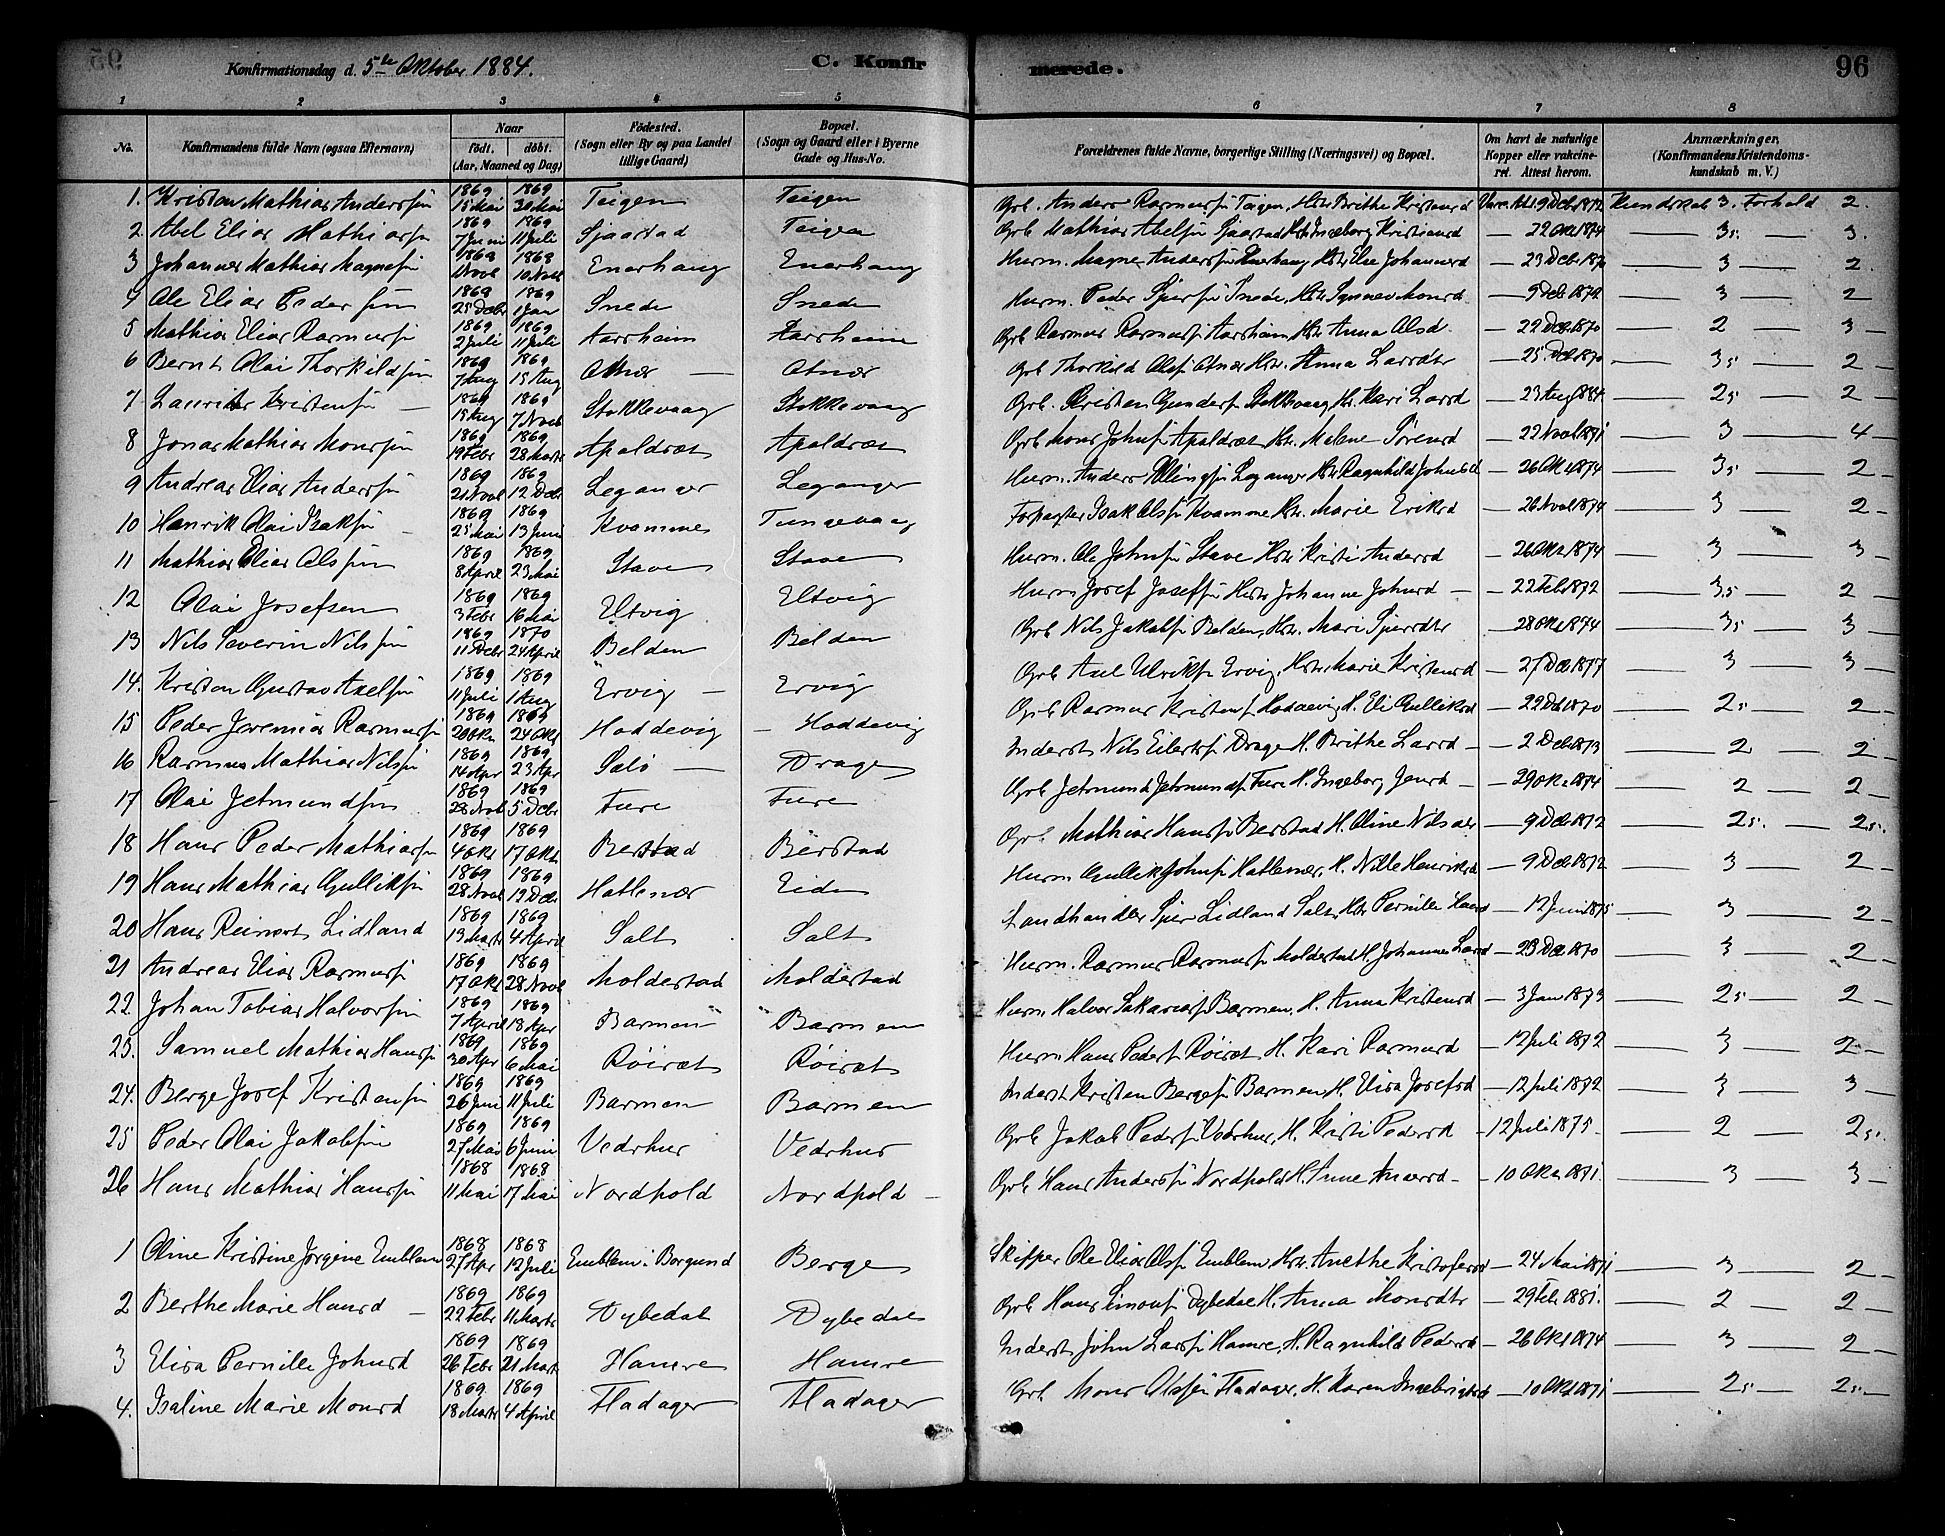 Konfirmationsdag d. 5te Oktober 1884. C. Konfirmerede. 96
1 2 3 4 5 6 7 8
No. Konfirmandens fulde Navn (ogsaa Efternavn) Naar født. døbt. (Aar, Maaned og Dag) Fødested. (Sogn eller By og paa Landet tillige Gaard) Bopæl. (Sogn og Gaard eller i Byerne Gade og Hus-No. Forældrenes fulde Navne, borgerlige Stilling (Næringsvei) og Bopæl. Om havt de naturlige Kopper eller vakcineret. Attest herom. Anmærkninger, (Konfirmandens Kristendomskundskab m. V.)
1. Kristen Mathias Anderssøn 1869 15 Mai 1869 30 Mai Teigen Teigen Grb. Anders Rasmussøn Teigen, Hst. Brithe Kristensd Vacc. Att. 9 Deb 1872 Kundskab 3. Forhold 2.
2. Abel Elias Mathiassøn 1869 7 Juni 1869 11 Juli Sjaastad Teigen Grb Mathias Abelsøn Sjaastad Hst. Ingeborg Kristiansd — 22 Okt 1874 — 3,5. — 3.
3 Johannes Mathias Magnesøn 1869 1869 10 Novb Enerhaug Enerhaug Husm. Magne Anderssøn Enerhaug Hst. Else Johannesd — 23 Debr 1870 — 3 — 2.
4 Ole Elias Pedersøn 1869 25 Debr 1869 1 Jan Snede Snede Husm. Peder Sjursøn Snede, Hst. Synneve Monsd — 9 Deb 1872 — 3 — 2
5 Mathias Elias Rasmussøn 1869 2 Juli 1869 11 Juli Aarsheim Aarsheim Grb Rasmus Rasmussøn Aarsheim Hst. Anna Olsd. — 22 Deb 1870 — 2 — 3 —
6 Bernt Olai Thorkildsøn 1869 7 Aug 1869 15 Aug Otnær — Otnær Grb Thorkild Olssøn Otnær Hst. Anna Larsdtr — 25 Deb 1870 — 3,5 — 2 —
7 Laurits Kristensøn — 1869 15 Aug 1869 7 Novb Stokkevaag Stokkevaag Grb. Kristen Gunderssøn Stokkevaag Hst. Kari Larsd — 23 Aug 1884 — 2,5 — 2 —
8 Jonas Mathias Monssøn 1869 19 Febr 1869 28 Marts Apaldsæt Apaldsæt Grb Mons Johnsøn Apaldsæt Hst. Malene Sørensd — 22 Novb 1871 — 3 — 4 —
9 Andreas Elias Anderssøn 1869 21 Novb 1869 12 Debr Leganger Leganger Husm. Anders Leganger Hst. Ragnhild Johnsd — 26 Okt 1874 — 3,5 — 2 —
10 Henrik Olai Isaksøn 1869 25 Mai 1869 13 Juni Kvamme Tungevaag Forpagter Isak Olssøn Kvamme Hst. Marie Eriksd — 26 Novb 1874 — 3 — 2 —
11 Mathias Elias Olssøn 1869 8 April 1869 23 Mai Stave Stave Husm. Ole Johnsøn Stave Hst. Kristi Andersd — 26 Okt 1874 — 3 — 3 —
12 Olai Josefsen 1869 3 Febr 1869 16 Mai Eltvig Eltvig Husm Josef Josefsøn Hst. Johanne Johnsd — — 22 Feb 1872 — 3,5 — 2 —
13 Nils Severin Nilssøn 1869 11 Debr 1870 24 April Belden Belden Grb Nils Jakobsøn Belden, Hst. Mari Sjursdtr — 28 Okt 1874 — 3,5 — 3 —
14. Kristen Gustav Axelsøn 1869 11 Juli 1869 1 Aug Ervig — Ervig Grb Axel Ulriksøn Ervig, Hst. Marie Kristensd — 27 Deb 1877 — 3 — 3 —
15 Peder Jeremias Rasmussøn 1869 20 Okt 1869 24 Okt Hoddevig — Hoddevig Grb Rasmus Kristensøn Hoddevig H. Eli Gulliksd — 22 Deb 1870 — 2,5 — 2 —
16 Rasmus Mathias Nilssøn 1869 14 Apr 1869 23 Apr Salø — Drage Inderst Nils Eilertsøn Drage H. Brithe Larsd — — 2 Deb 1873 — 2 — 2 —
17 Olai Jetmundsøn 1869 28 Novb 1869 5 Debr Fure Fure Grb Jetmund Jetmundsøn Fure H. Ingeborg Jensd — — 29 Okt 1874 — 2 — 2 —
18 Hans Peder Mathiassøn 1869 4 Okt 1869 17 Okt Berstad Berstad Grb Mathias Hanssøn Berstad H. Oline Nilsdtr — 9 Deb 1872 — 2,5. — 2,5.
19 Hans Mathias Gulliksøn 1869 28 Novb 1869 19 Debr Hatlenær Eide Husm Gullik Johnsøn Hatlenær, H. Nille Henriksd — 9 Deb 1872 — 3 — 2 —
20 Hans Reinert Lidland 1869 13 Marts 1869 4 April Salt Salt Landhandler Sjur Lidland Salt, Hst. Pernille Hansd — 12 Juni 1875 — 3 — 2 —
21 Andreas Elias Rasmussøn 1869 17 Okt 1869 28 Novb Moldestad Moldestad Husm. Rasmus Rasmussøn Moldestad H. Johanne Larsd — 23 Deb 1870 — 3 — 2 —
22 Johan Tobias Halvorssøn 1869 7 April 1869 18 Apr Barmen Barmen Husm. Halvor Sakariassøn Barmen, H. Anna Kristensd — 3 Jan 1873 — 2,5 — 2 —
23. Samuel Mathias Hanssøn 1869 30 Apr 1869 6 Mai Røisæt Røisæt Husm Hans Pedersøn Røisæt H. Kari Rasmusd — 12 Juli 1872 — 3 — 2 —
24. Berge Josef Kristensøn 1869 26 Juni 1869 11 Juli Barmen Barmen Inderst Kristen Bergesøn Barmen H. Elisa Josefsd — 12 Juli 1872 — 3 — 3 —
25 Peder Olai Jakobsøn 1869 27 Mai 1869 6 Juni Vedrhus Vedrhus Grb Jakob Pedersøn Vedrhus, H. Kristi Pedersd — 12 Juli 1875 — 2 — 2,5.
26 Hans Mathias Hanssøn 1868 11 Mai 1868 17 Mai Nordpold Nordpold — Grb Hans Anderssøn Nordpold H. Anne Andersd — 10 Okt 1871. — 3 — 3 —
1 Oline Kristine Jørgine Emblem 1868 27 Apr 1868 12 Juli Emblem i Borgund Berge Skipper Ole Elias Olssøn Emblem Hst. Anethe Kristofersd — 24 Mai 1871 — 3 — 2 —
2 Berthe Marie Hansd — 1869 22 Febr 1869 11 Marts Dybedal Dybedal Grb Hans Simonsøn Dybedal H. Anna Monsdtr — 29 Feb 1881. — 2 — 2 —
3 Elisa Pernille Johnsd 1869 26 Febr 1869 21 Marts Hamre Hamre Inderst John Larssøn Hamre, H. Ragnhild Pedersd — 26 Okt 1874 — 3 — 2 —
4. Isaline Marie Monsd 1869 18 Marts 1869 4 April Fladager Fladager Grb Mons Olssøn Fladager, H. Karen Ingebrigtsd — 10 Okt 1871 — 2,5 — 2,5 —